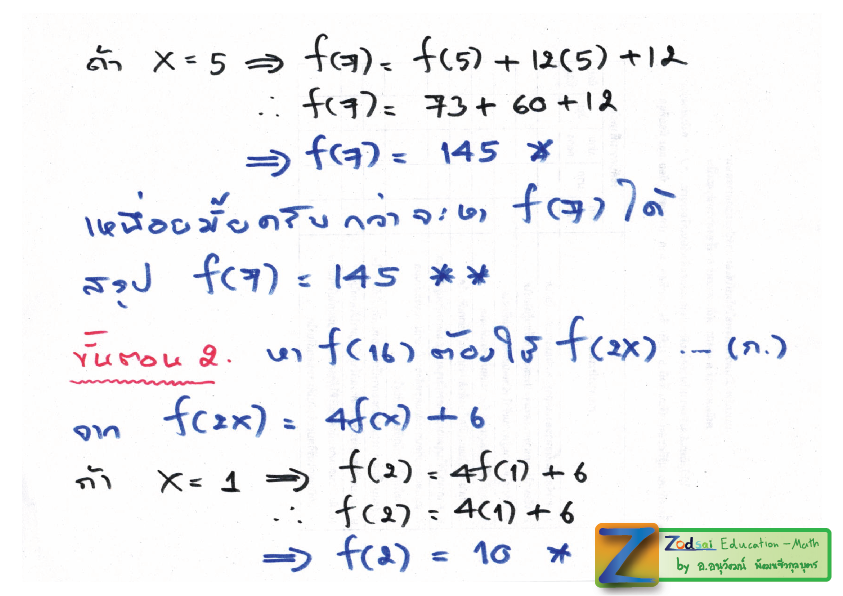 ถ้า X = 5 ⇒ f(7) = f(5) + 12(5) + 12
∴ f(7) = 73 + 60 + 12
⇒ f(7) = 145 *
เหนื่อยมั๊ยครับ กว่าจะหา f(7) ได้
สรุป f(7) = 145 * *
ขั้นตอน 2. หา f(16) ต้องใช้ f(2X) ... (ก.)
จาก f(2x) = 4f(x) + 6
ถ้า X = 1 ⇒ f(2) = 4f(1) + 6
∴ f(2) = 4(1) + 6
⇒ f(2) = 10 *
Zodsai Education - Math
by อ.อนุวัฒน์